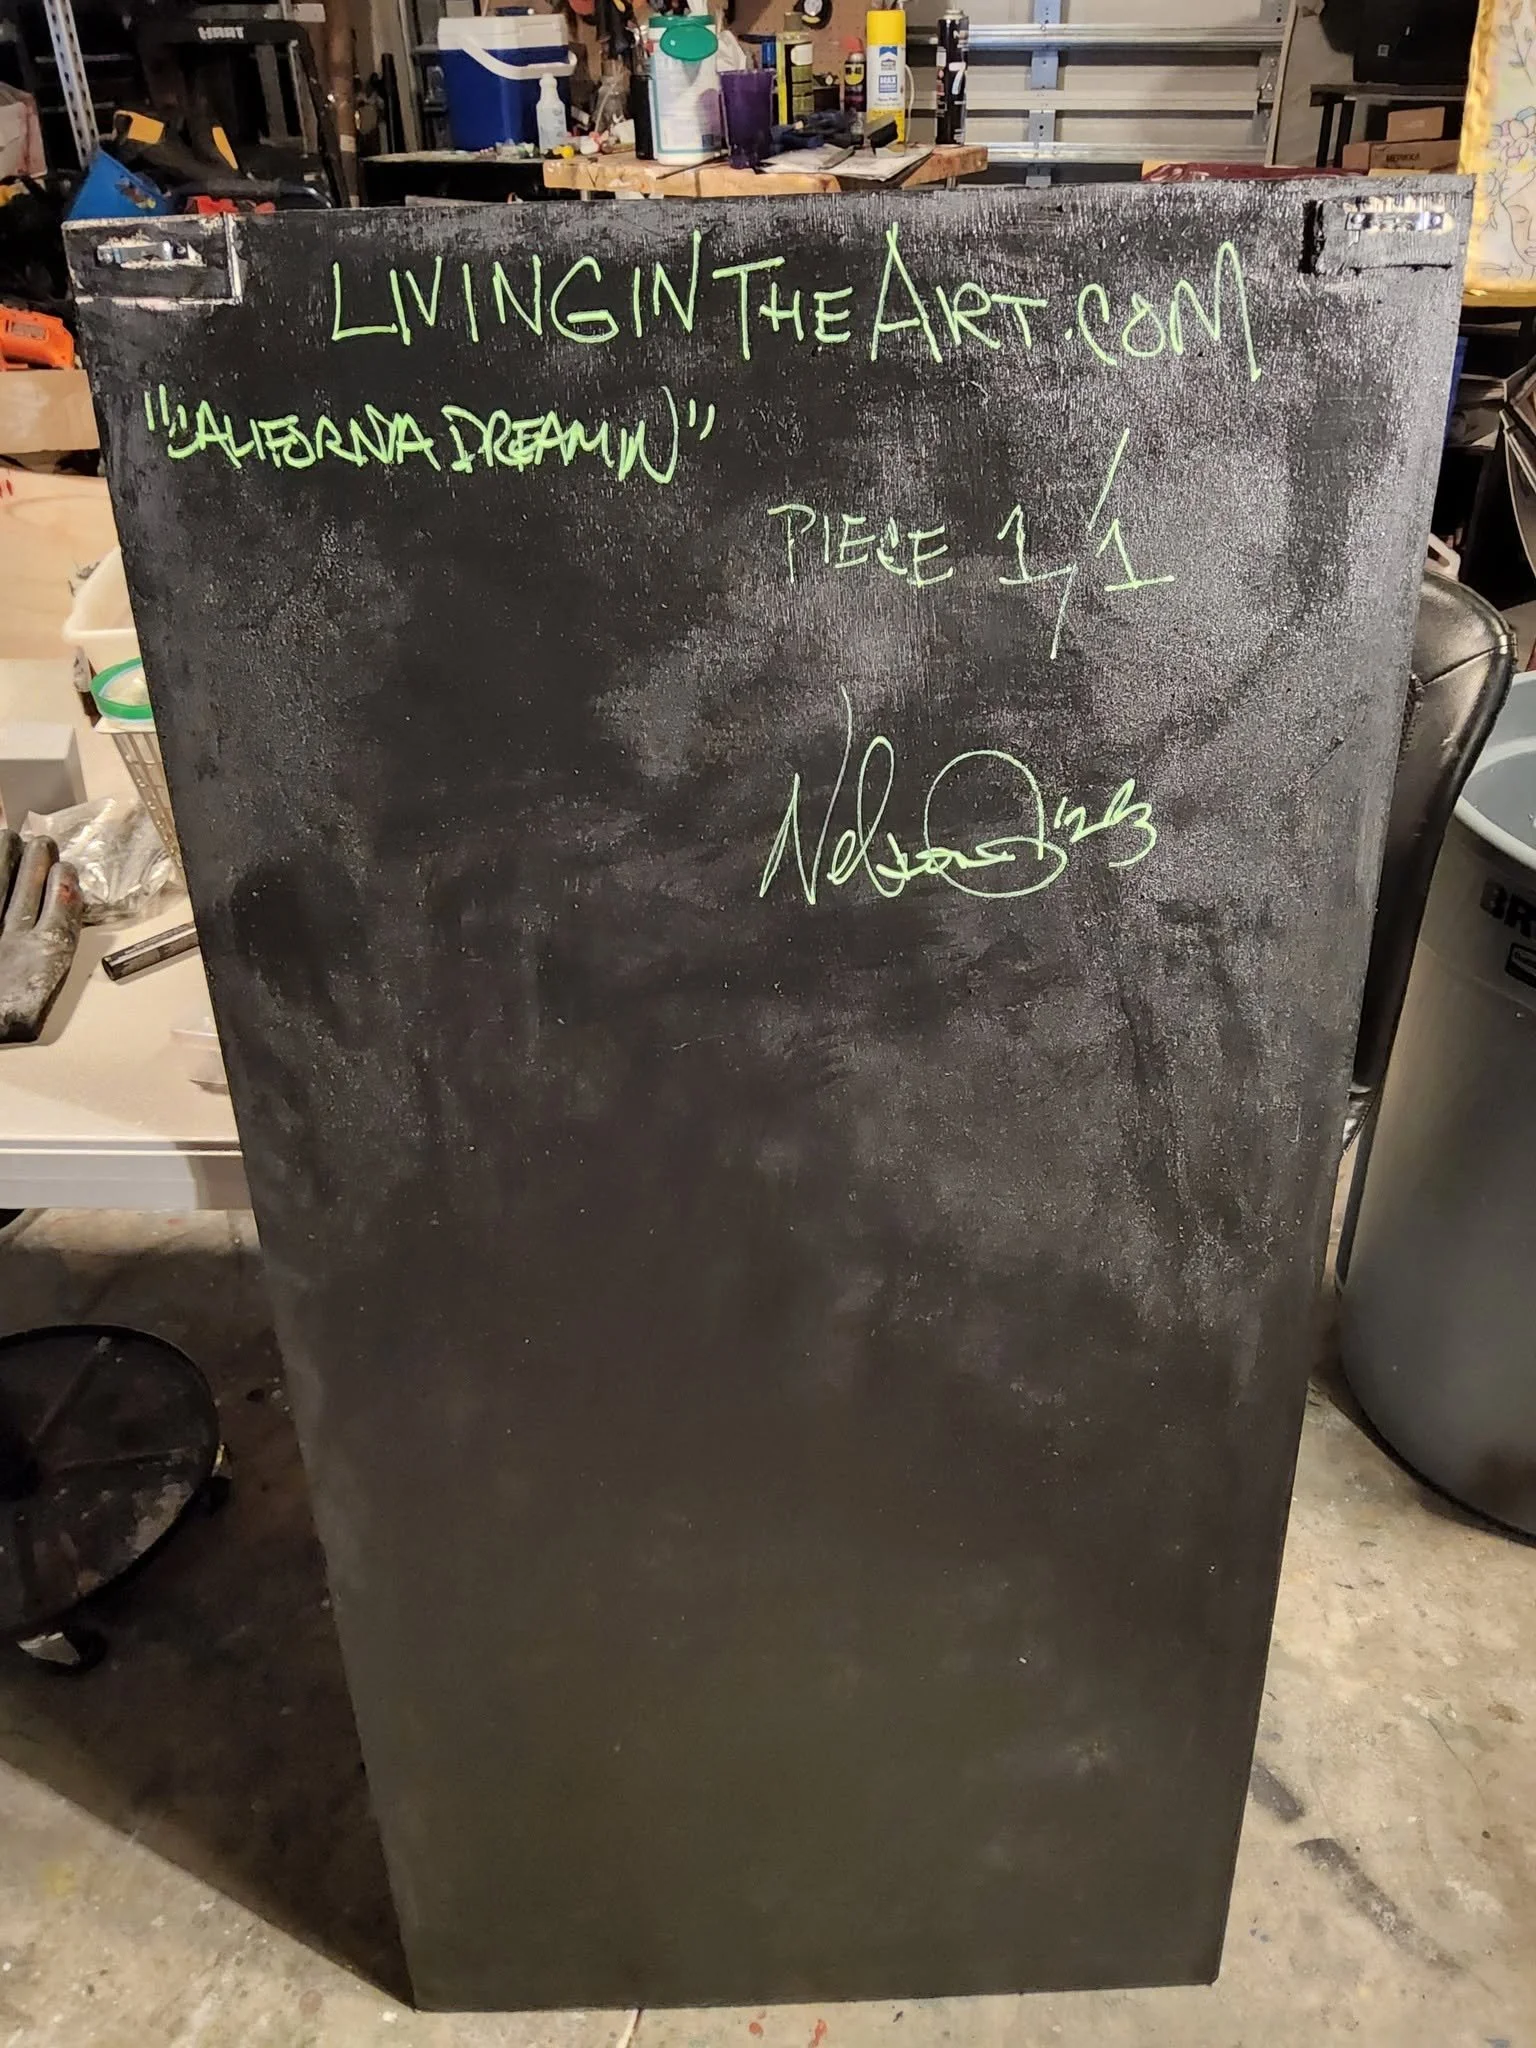 HART
LIVINGINTHEART.COM
"CALIFORNIA DREAMIN"
PIECE 1/1
Nelson '23